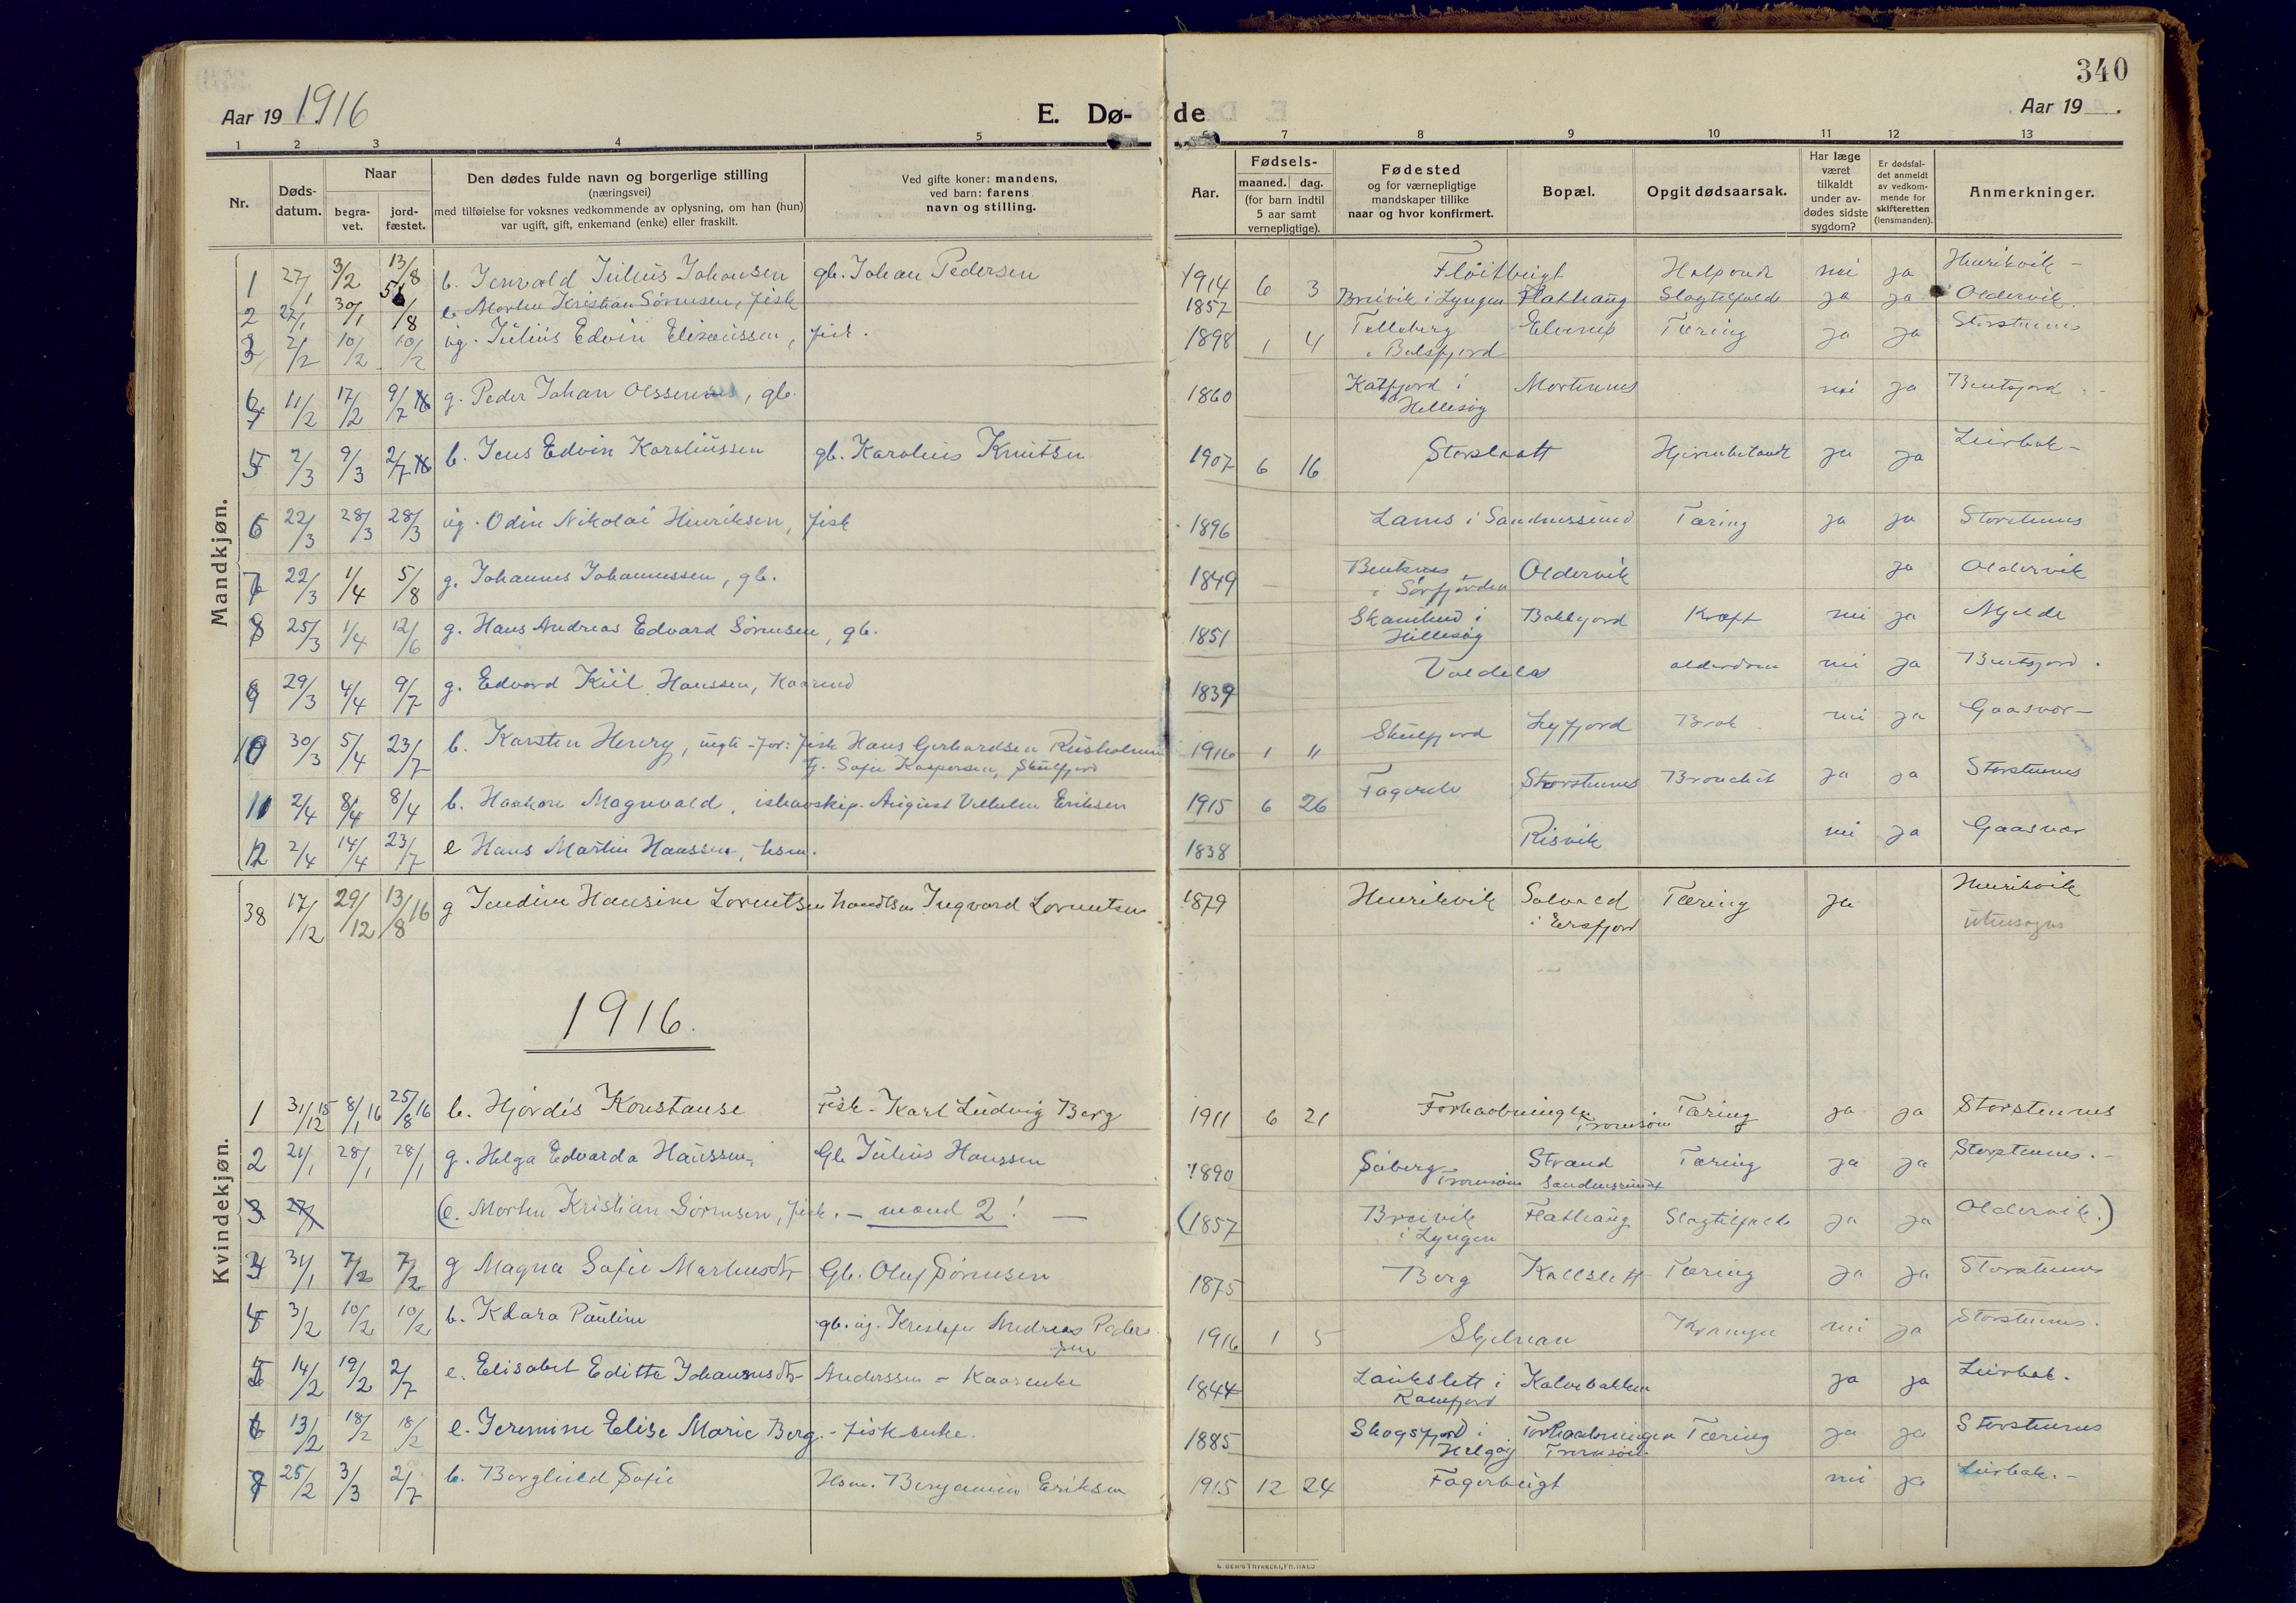 340
Aar 19 1916
E. Dø-
de
Aar 19 .
1 2 3 4 5 6 7 8 9 10 11 12 13
Nr.
Døds-
datum.
Naar
begra-
vet.
jord-
fæstet.
Den dødes fulde navn og borgerlige stilling
(næringsvei)
med tilføielse for voksnes vedkommende av oplysning, om han (hun)
var ugift, gift, enkemand (enke) eller fraskilt.
Ved gifte koner: mandens,
ved barn: farens
navn og stilling.
Aar.
Fødsels-
maaned. dag.
(for barn indtil
5 aar samt
vernepligtige).
Fødested
og for værnepligtige
mandskaper tillike
naar og hvor konfirmert.
Bopæl.
Opgit dødsaarsak.
Har læge
været
tilkaldt
under av-
dødes sidste
sygdom?
Er dødsfal-
det anmeldt
av vedkom-
mende for
skifteretten
(lensmanden).
Anmerkninger.
Mandkjøn.
1 27/1 3/2 13/8 b. Jenvald Julius Johansen gb. Johan Pedersen 1914 6 3 Fløitbugt nei ja Henrikvik -
2 27/1 30/1 5/8 e Morten Kristian Sørensen, fisk 1857 Breivik i Lyngen Flathaug Slagtilfælde ja ja Oldervik.
3 2/2 10/2 10/2 ug. Julius Edvin Elizeussen, fisk. 1898 1 4 i Balsfjord Tæring ja ja Storstennes
4 11/2 17/2 9/7 16 g. Peder Johan Olssen, gb. 1860 Katfjord i Hillesøy Mortennes nei ja Bentsjord
5 2/3 9/3 2/7 16 b. Jens Edvin Karoliussen gb. Karolius Knutsen 1907 6 16 Storslaatt Hjernebetændt ja ja Leirbak -
6 22/3 28/3 28/3 ug. Odin Nikolai Henriksen, fisk 1896 Lanes i Sandnessund Tæring ja ja Storstennes
7 22/3 1/4 5/8 g. Johannes Johannessen, gb. 1849 i Sørfjorden Oldervik ja Oldervik
8 25/3 1/4 12/6 g. Hans Andreas Edvard Sørensen, gb. 1851 i Hillesøy Kræft nei ja Mjelde
9 29/3 4/4 9/7 g. Edvard Kiil Hanssen, Kaarmd 1839 alderdom nei ja Bentsjord.
10 30/3 5/4 23/7 b. Karsten Henry, uegte - for: fisk Hans Gerhardsen Risholmen
fj. Sofie Kaspersen, Skulfjord 1916 1 11 Skulfjord Lyfjord Brok nei ja Gaasvær -
11 2/4 8/4 8/4 b. Haakon Magnvald, ishavskip. August Vilhelm Eriksen 1915 6 26 Fagerelv Storstennes Bronchit ja ja Storstennes
12 2/4 14/4 23/7 e Hans Martin Hanssen, hsm. 1838 Risvik nei ja Gaasvær
38 17/12 29/12 13/8 16 g Jendine Hansine Lorentsen handlsm Ingvard Lorentsen 1879 Henrikvik Solvold i Ersfjord Tæring ja Henrikvik
utensogns
1916.
Kvindekjøn.
1 31/12 15 8/1 16 25/8 16 b. Hjørdis Konstanse Fisk - Karl Ludvig Berg 1911 6 21 Forhaabningen Tromsøen Tæring ja ja Storstennes
2 21/1 28/1 28/1 g. Helga Edvarda Hanssen Gb. Julius Hanssen 1890 Solberg Tromsøen Strand Sandnessundet Tæring ja ja Storstennes. -
3 27/1 (e. Morten Kristian Sørensen, fisk. - mand 2! - (1857 Breivik i Lyngen Flathaug Slagtilfælde ja ja Oldervik.)
3 31/1 7/2 7/2 g Magna Sofie Marhusdtr Gb. Oluf Sørensen 1875 Berg Kallslett Tæring ja ja Storstennes
4 3/2 10/2 10/2 b. Klara Pauline gb. ug. Kristofer Andreas Peder-
sen 1916 1 5 Skjelnan nei ja Storstennes.
5 14/2 19/2 2/7 e. Elisabet Editte Johannesdtr Anderssen - Kaarenke 1844 Laukslett i Ramfjord Kalvebakken ja ja Leirbak.
6 13/2 18/2 18/2 e. Jeremine Elise Marie Berg. - fiskenke. 1885 Skogsfjord i Helgøy Forhaabningen Tromsøen Tæring ja ja Storstennes
7 25/2 3/3 2/7 b. Borghild Sofie Hsm. Benjamin Eriksen 1915 12 24 Fagerbugt nei ja Leirbak. -